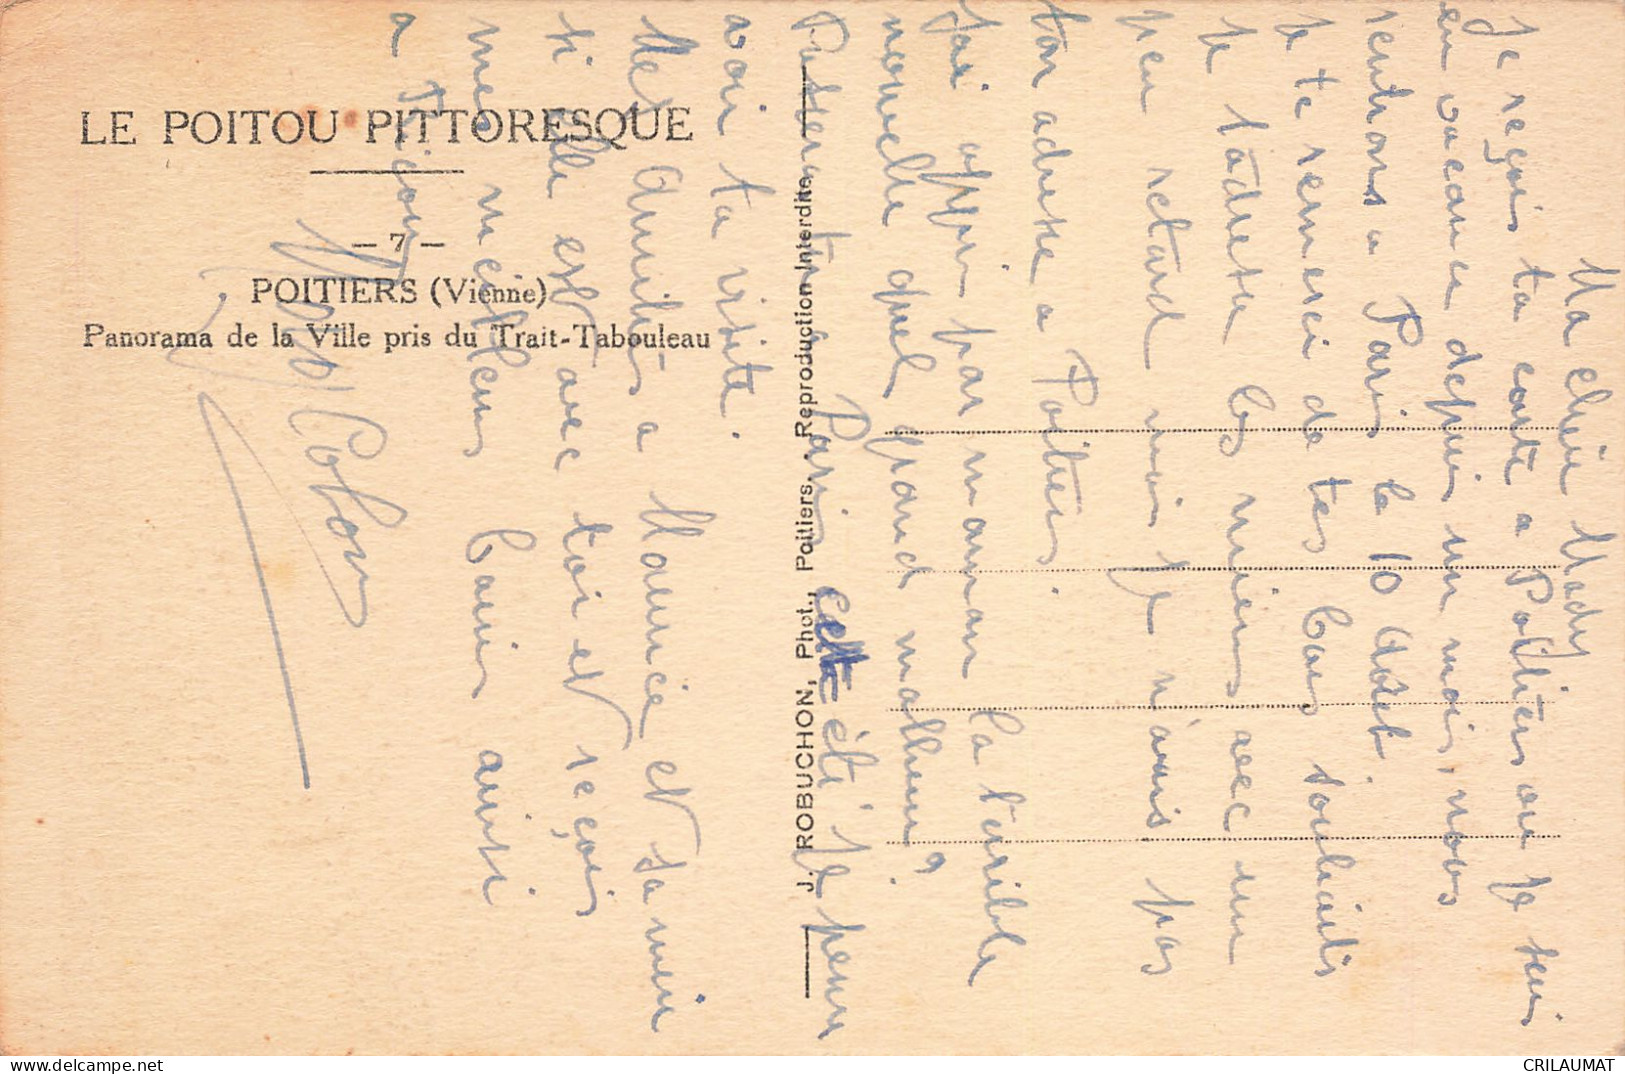 LE POITOU PITTORESQUE
— 7 —
POITIERS (Vienne)
Panorama de la Ville pris du Trait-Tabouleau
J. ROBUCHON, Phot., Poitiers. Reproduction Interdite
Ma chère Mady
Je reçois ta carte a Poitiers ou je suis
en vacance depuis un mois, nous
rentrons a Paris le 10 Aout.
je te remerci de tes bons souhaits
je t'adresse les miens avec un
peu retard mais je n'avais pas
ton adresse a Poitiers
j'ai appris par maman la terrible
nouvelle quel grand malheur,
Passeras tu a Paris cette été? Je pense
avoir ta visite.
Mes Amitiés a Maurice et Jamin
si elle est avec toi et reçois
mes meilleurs baisers ainsi
a
Colon
CRILAUMAT